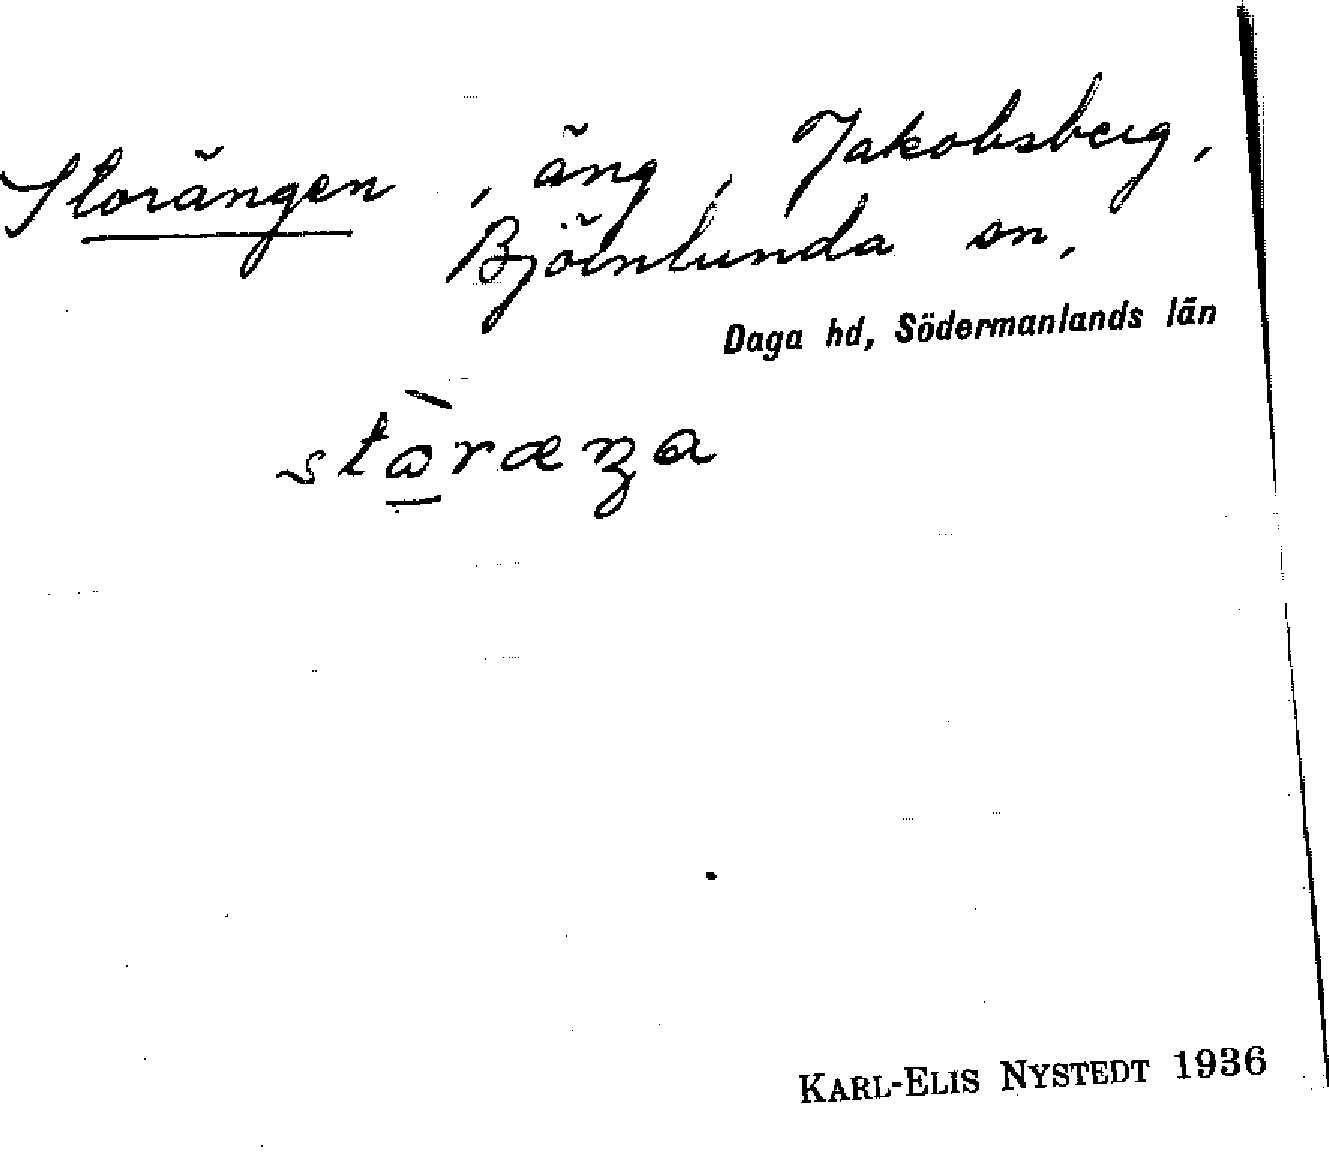 Storängen, äng, Jakobsberg,
Björnlunda sn,
Daga hd, Södermanlands län
KARL-ELIS NYSTEDT 1936